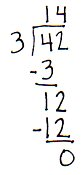 14
3 42
-3
12
-12
0